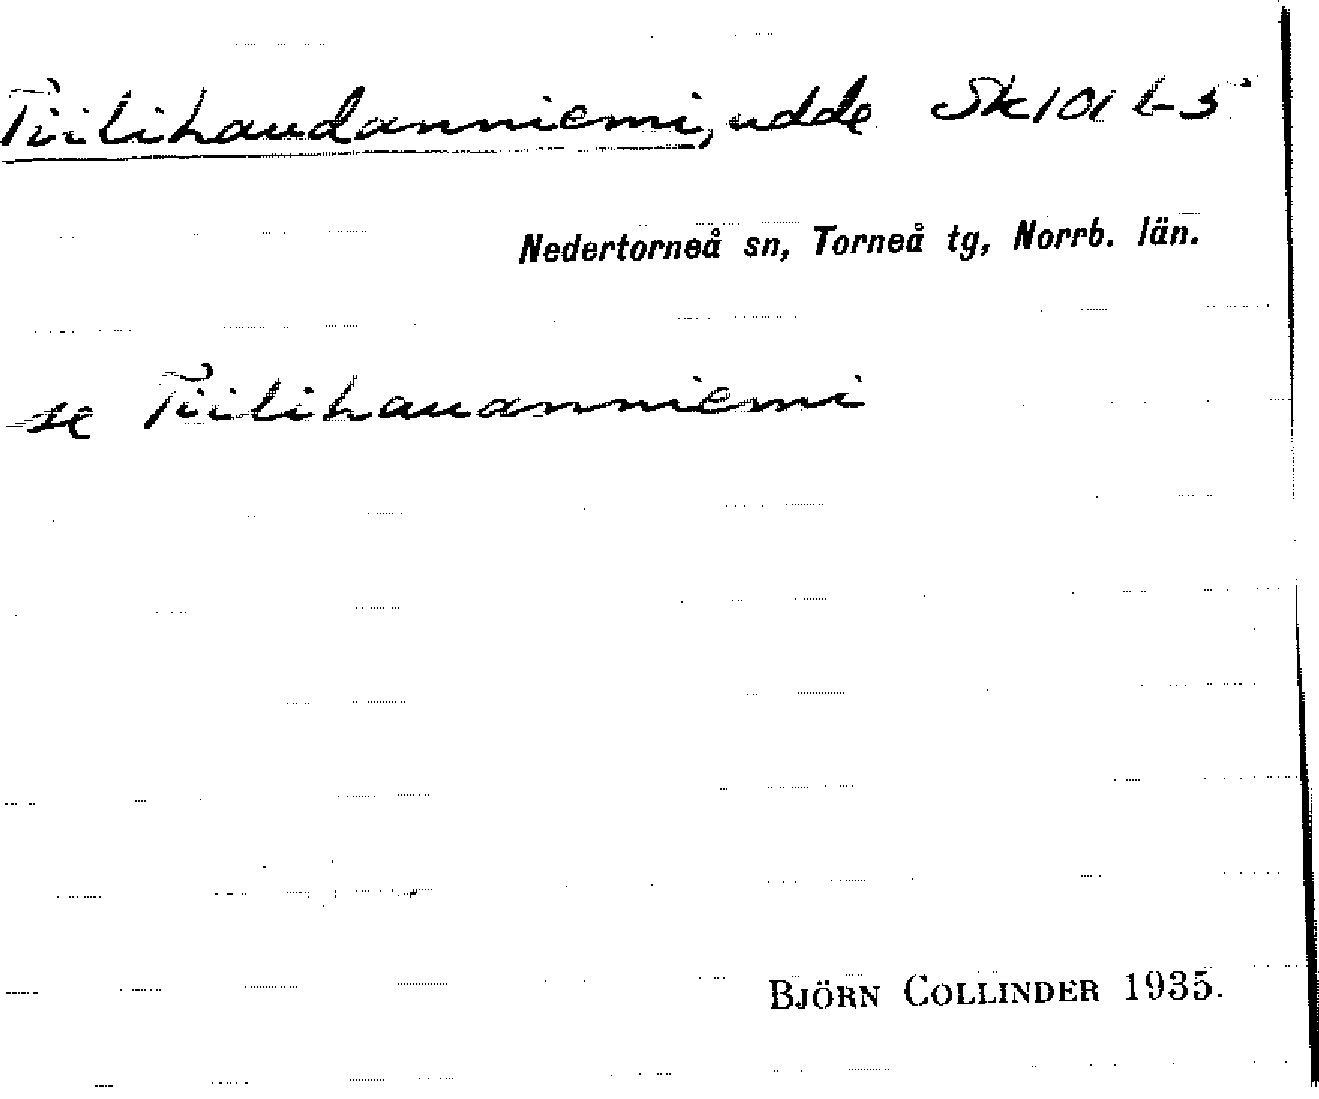 Tiilihaudanniemi, udde Sk101 b-5
Nedertorneå sn, Torneå tg, Norrb. län.
se Tiilihauanniemi
BJÖRN COLLINDER 1935.